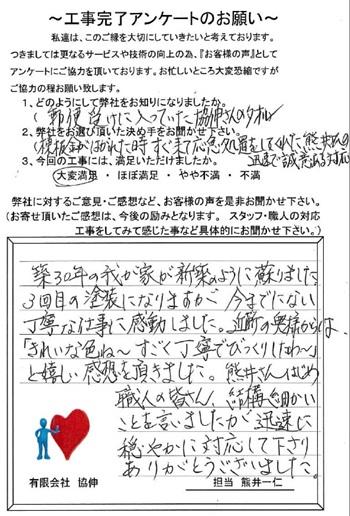 ～工事完了アンケートのお願い～
私達は、このご縁を大切にしていきたいと考えております。
つきましては更なるサービスや技術の向上の為、『お客様の声』として
アンケートにご協力を頂いております。お忙しいところ大変恐縮ですが
ご協力の程お願い致します。
1、どのようにして弊社をお知りになりましたか。
(郵便受けに入っていた協伸さんのタオル
2、弊社をお選び頂いた決め手をお聞かせ下さい。
(棟板金がはがれた時すぐ来て応急処置をしてくれた熊井さんの
迅速で誠意ある対応
3、今回の工事には、満足いただけましたか。
大変満足 ・ ほぼ満足 ・ やや不満 ・ 不満
弊社に対するご意見・ご感想など、お客様の声を是非お聞かせ下さい。
(お寄せ頂いたご感想は、今後の励みとなります。 スタッフ・職人の対応
工事をしてみて感じた事など具体的にお聞かせ下さい。)
築30年の我が家が新築のように蘇りました
3回目の塗装になりますが 今までにない
丁寧な仕事に感動しました。近所の奥様からは、
「きれいな色ね～ すごく丁寧でびっくりしたわ～」
と嬉しい感想を頂きました。 熊井さんはじめ
職人の皆さん、結構細かい
ことを言いましたが迅速に
穏やかに対応して下さり
ありがとうございました。
有限会社 協伸
担当 熊井一仁